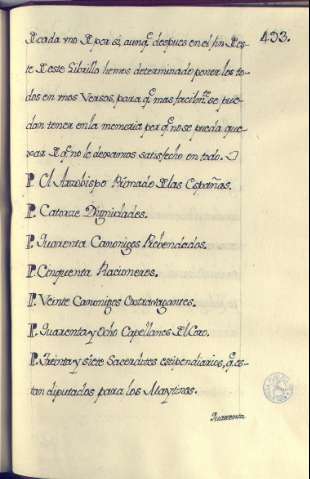 433.
de cada vno de por sí, aunq̃ despues en el fin des-
te de este Librillo hemos determinado poner los to-
dos en unos Versos, para q̃ mas facilm.te se pue-
dan tener en la memoria porq̃ no se pueda que-
xar de q̃ no le dexamos satisfecho en todo.
P. El Arzobispo Primado de las Españas.
P. Catorze Dignidades.
P. Quarenta Canonigos Prebendados.
P. Cinquenta Racioneros.
P. Veinte Canonigos Extravagantes.
P. Quarenta y Ocho Capellanes del Coro.
P. Treinta y siete Sacerdotes estipendiarios, q̃ es-
tan diputados para los Maytines.
Quarenta